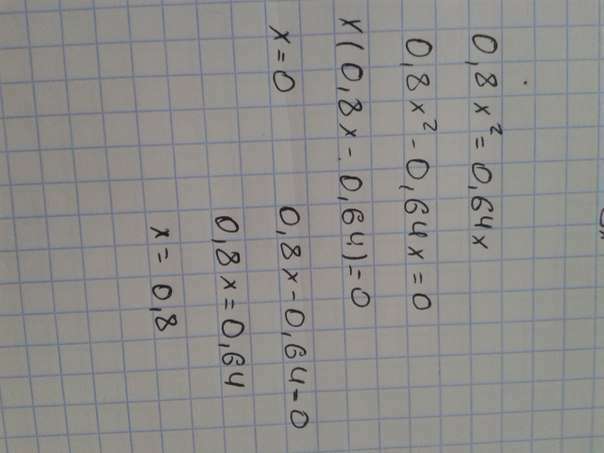 0,8x² = 0,64x
0,8x² - 0,64x = 0
x(0,8x - 0,64) = 0
x = 0 0,8x - 0,64 = 0
0,8x = 0,64
x = 0,8